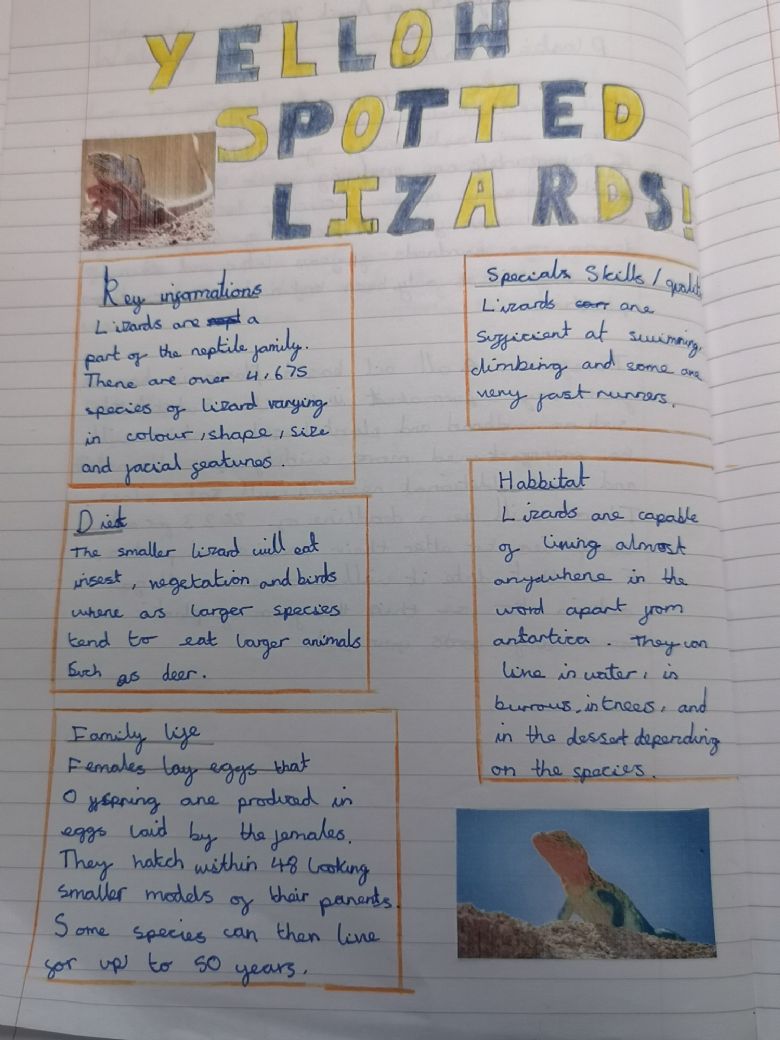 YELLOW
SPOTTED
LIZARDS!
Key informations
Lizards are a
part of the reptile family.
There are over 4,675
species of lizard varying
in colour, shape, size
and facial features.
Diet
The smaller lizard will eat
insest, vegetation and birds
where as larger species
tend to eat larger animals
Such as deer.
Family life
Females lay eggs that
Offspring are produced in
eggs laid by the females.
They hatch within 48 looking
smaller models of their parents.
Some species can then live
for up to 50 years.
Specials Skills /
Lizards are
sufficient at swimming,
climbing and some are
very fast runners.
Habbitat
Lizards are capable
of living almost
anywhere in the
word apart from
antartica. They can
live in water, in
burrows, in trees, and
in the dessert depending
on the species.